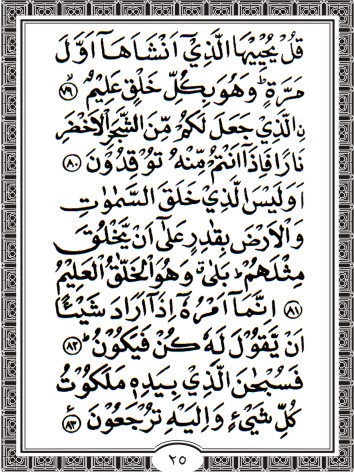 قُلْ يُحْيِيْهَا الَّذِيْٓ اَنْشَاَهَآ اَوَّلَ
مَرَّةٍ ؕ وَهُوَ بِكُلِّ خَلْقٍ عَلِيْمُ ۙ﴿۷۹﴾
نِالَّذِيْ جَعَلَ لَكُمْ مِّنَ الشَّجَرِ الْاَخْضَرِ
نَارًا فَاِذَآ اَنْتُمْ مِّنْهُ تُوْقِدُوْنَ ﴿۸۰﴾
اَوَلَيْسَ الَّذِيْ خَلَقَ السَّمٰوٰتِ
وَالْاَرْضَ بِقٰدِرٍ عَلٰٓى اَنْ يَّخْلُقَ
مِثْلَهُمْ ؕ بَلٰى ۗ وَهُوَ الْخَلّٰقُ الْعَلِيْمُ
﴿۸۱﴾ اِنَّمَآ اَمْرُهٗٓ اِذَآ اَرَادَ شَيْـًٔا
اَنْ يَّقُوْلَ لَهٗ كُنْ فَيَكُوْنُ ﴿۸۲﴾
فَسُبْحٰنَ الَّذِيْ بِيَدِهٖ مَلَكُوْتُ
كُلِّ شَيْءٍ وَّاِلَيْهِ تُرْجَعُوْنَ ﴿۸۳﴾
٢٥